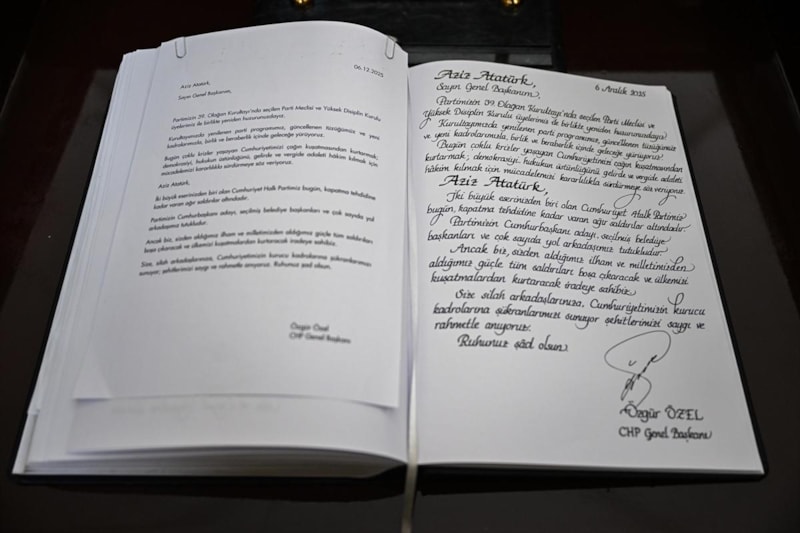 06.12.2025
Aziz Atatürk,
Sayın Genel Başkanım,
Partimizin 39. Olağan Kurultayı'nda seçilen Parti Meclisi ve Yüksek Disiplin Kurulu
üyelerimiz ile birlikte yeniden huzurunuzdayız.
Kurultayımızda yenilenen parti programımız, güncellenen tüzüğümüz ve yeni
kadrolarımızla, birlik ve beraberlik içinde geleceğe yürüyoruz.
Bugün çoklu krizler yaşayan Cumhuriyetimizi çağın kuşatmasından kurtarmak,
demokrasiyi, hukukun üstünlüğünü, gelirde ve vergide adaleti hâkim kılmak için
mücadelemizi kararlılıkla sürdürmeye söz veriyoruz.
Aziz Atatürk,
İki büyük eserinizden biri olan Cumhuriyet Halk Partimiz bugün, kapatma tehdidine
kadar varan ağır saldırılar altındadır.
Partimizin Cumhurbaşkanı adayı, seçilmiş belediye başkanları ve çok sayıda yol
arkadaşımız tutukludur.
Ancak biz, sizden aldığımız ilham ve milletimizden aldığımız güçle tüm saldırıları
boşa çıkaracak ve ülkemizi kuşatmalardan kurtaracak iradeye sahibiz.
Size, silah arkadaşlarınıza, Cumhuriyetimizin kurucu kadrolarına şükranlarımızı
sunuyor; şehitlerimizi saygı ve rahmetle anıyoruz. Ruhunuz şad olsun.
Özgür Özel
CHP Genel Başkanı
Aziz Atatürk,
6 Aralık 2025
Sayın Genel Başkanım,
Partimizin 39. Olağan Kurultayı'nda seçilen Parti Meclisi ve
Yüksek Disiplin Kurulu üyelerimiz ile birlikte yeniden huzurunuzdayız.
Kurultayımızda yenilenen parti programımız, güncellenen tüzüğümüz
ve yeni kadrolarımızla, birlik ve beraberlik içinde geleceğe yürüyoruz.
Bugün çoklu krizler yaşayan Cumhuriyetimizi çağın kuşatmasından
kurtarmak, demokrasiyi, hukukun üstünlüğünü, gelirde ve vergide adaleti
hâkim kılmak için mücadelemizi kararlılıkla sürdürmeye söz veriyoruz.
Aziz Atatürk,
İki büyük eserinizden biri olan Cumhuriyet Halk Partimiz
bugün, kapatma tehdidine kadar varan ağır saldırılar altındadır.
Partimizin Cumhurbaşkanı adayı, seçilmiş belediye
başkanları ve çok sayıda yol arkadaşımız tutukludur.
Ancak biz, sizden aldığımız ilham ve milletimizden
aldığımız güçle tüm saldırıları boşa çıkaracak ve ülkemizi
kuşatmalardan kurtaracak iradeye sahibiz.
Size silah arkadaşlarınıza, Cumhuriyetimizin kurucu
kadrolarına şükranlarımızı sunuyor şehitlerimizi saygı ve
rahmetle anıyoruz.
Ruhunuz şâd olsun.
Özgür ÖZEL
CHP Genel Başkanı